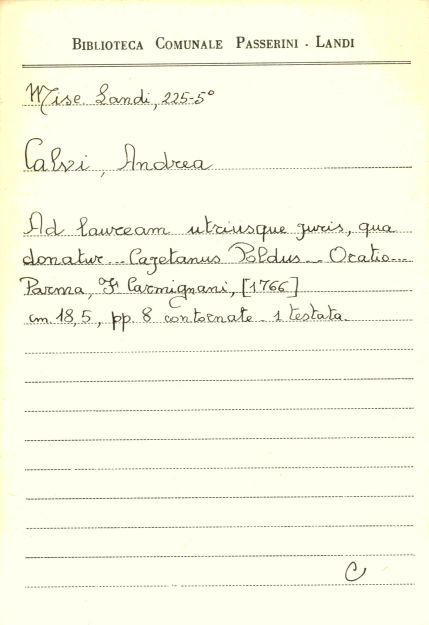 BIBLIOTECA COMUNALE PASSERINI - LANDI
Misc. Landi, 225-5°
Calvi, Andrea
Ad lauream utriusque juris, qua
donatur... Cajetanus Poldus... Oratio...
Parma, F. Carmignani, [1766]
cm. 18,5, pp. 8 contornate - 1 testata.
C